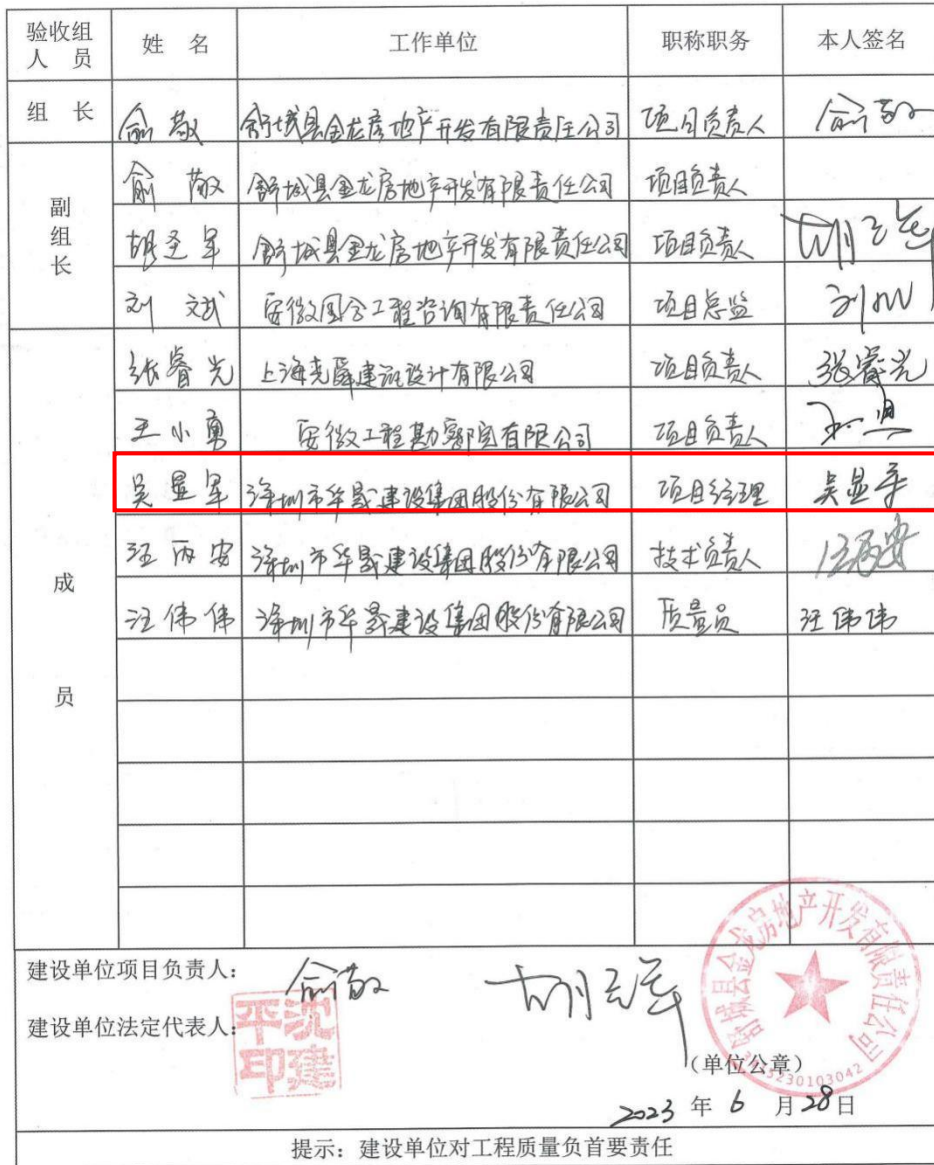 验收组人 员 姓 名 工作单位 职称职务 本人签名
组 长 俞敬 舒城县金龙房地产开发有限责任公司 项目负责人 俞敬
副组长
俞敬 舒城县金龙房地产开发有限责任公司 项目负责人
胡圣军 舒城县金龙房地产开发有限责任公司 项目负责人
刘斌 安徽国合工程咨询有限责任公司 项目总监
成员
张睿光 上海尧舜建筑设计有限公司 项目负责人 张睿光
王小勇 安徽工程勘察院有限公司 项目负责人
吴显军 深圳市华晟建设集团股份有限公司 项目经理 吴显军
汪丙安 深圳市华晟建设集团股份有限公司 技术负责人 汪丙安
汪伟伟 深圳市华晟建设集团股份有限公司 质量员 汪伟伟
建设单位项目负责人: 俞敬
建设单位法定代表人: 沈建平印
舒城县金龙房地产开发有限责任公司
(单位公章)
2023 年 6 月 28 日
提示:建设单位对工程质量负首要责任